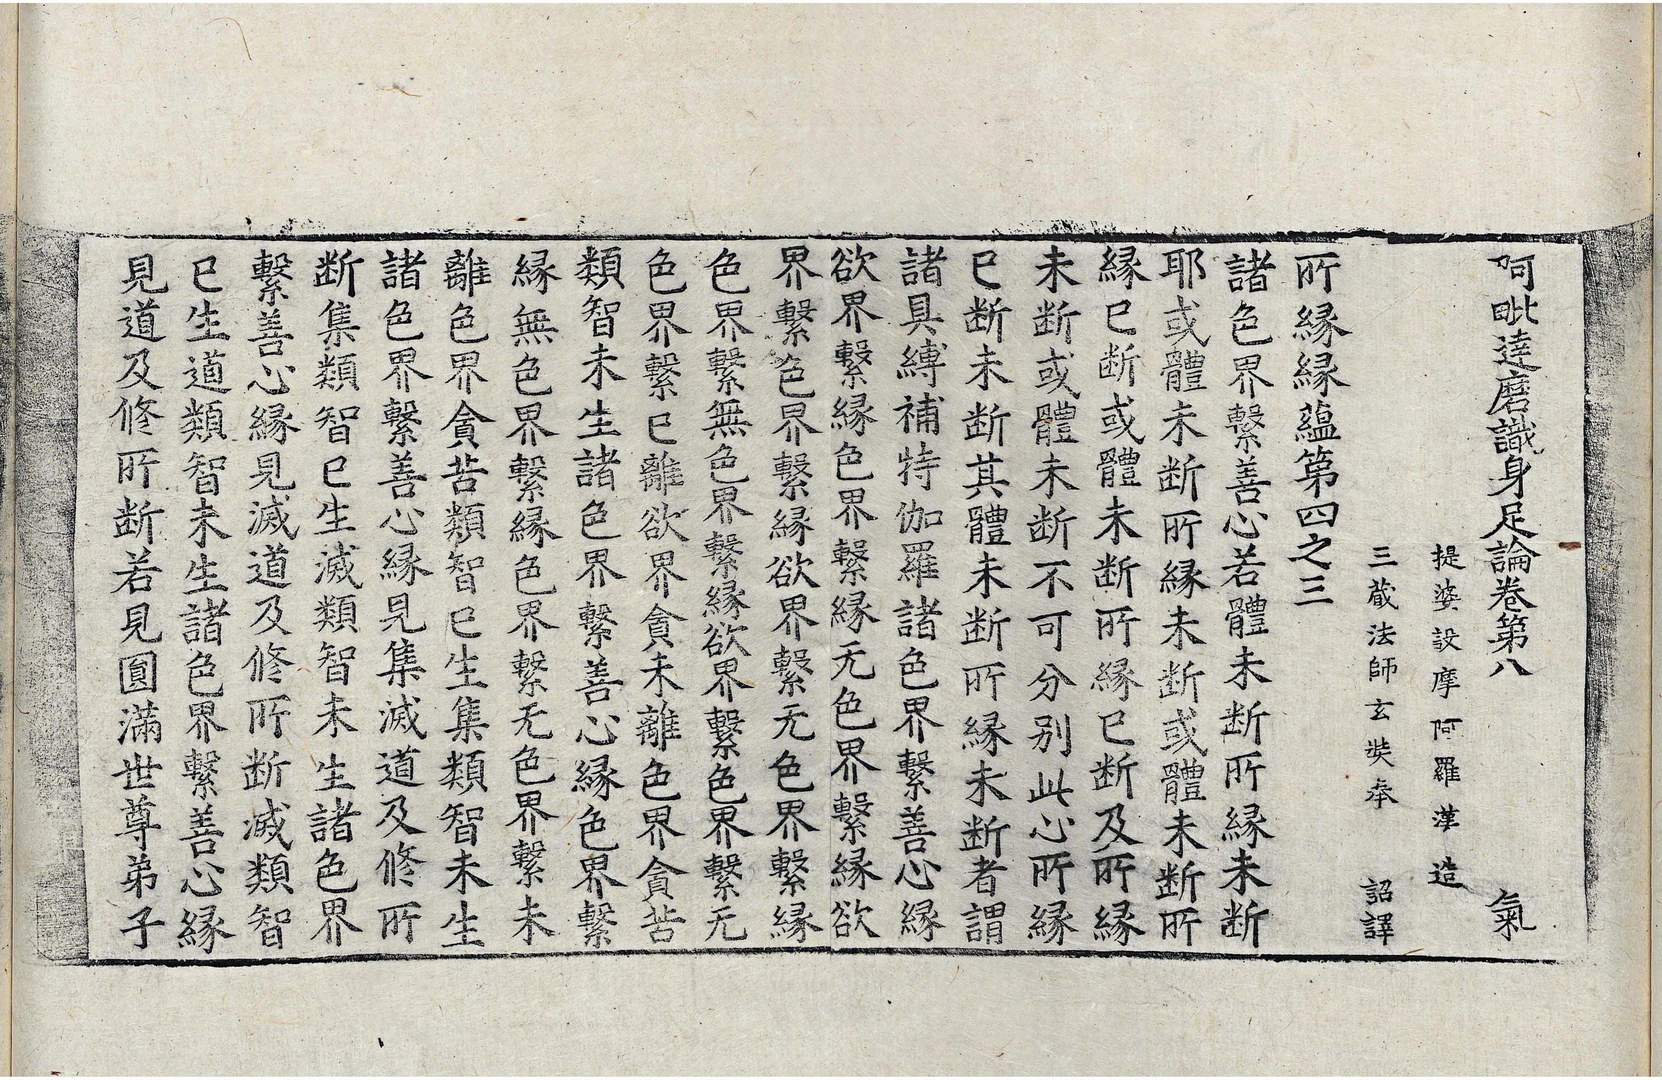 阿毗達磨識身足論卷第八 氣
提婆設摩阿羅漢 造
三藏法師玄奘奉 詔譯
所緣緣蘊第四之三
諸色界繫善心若體未断所緣未断
耶或體未断所緣未断或體未断所
緣已断或體未断所緣已断及所緣
未断或體未断不可分別此心所緣
已断未断其體未断所緣未断者謂
諸具縛補特伽羅諸色界繫善心緣
欲界繫緣色界繫緣无色界繫緣欲
界繫色界繫緣欲界繫无色界繫緣
色界繫無色界繫緣欲界繫色界繫无
色界繫已離欲界貪未離色界貪苦
類智未生諸色界繫善心緣色界繫
緣無色界繫緣色界繫无色界繫未
離色界貪苦類智已生集類智未生
諸色界繫善心緣見集滅道及修所
断集類智已生滅類智未生諸色界
繫善心緣見滅道及修所断滅類智
已生道類智未生諸色界繫善心緣
見道及修所断若見圓滿世尊弟子